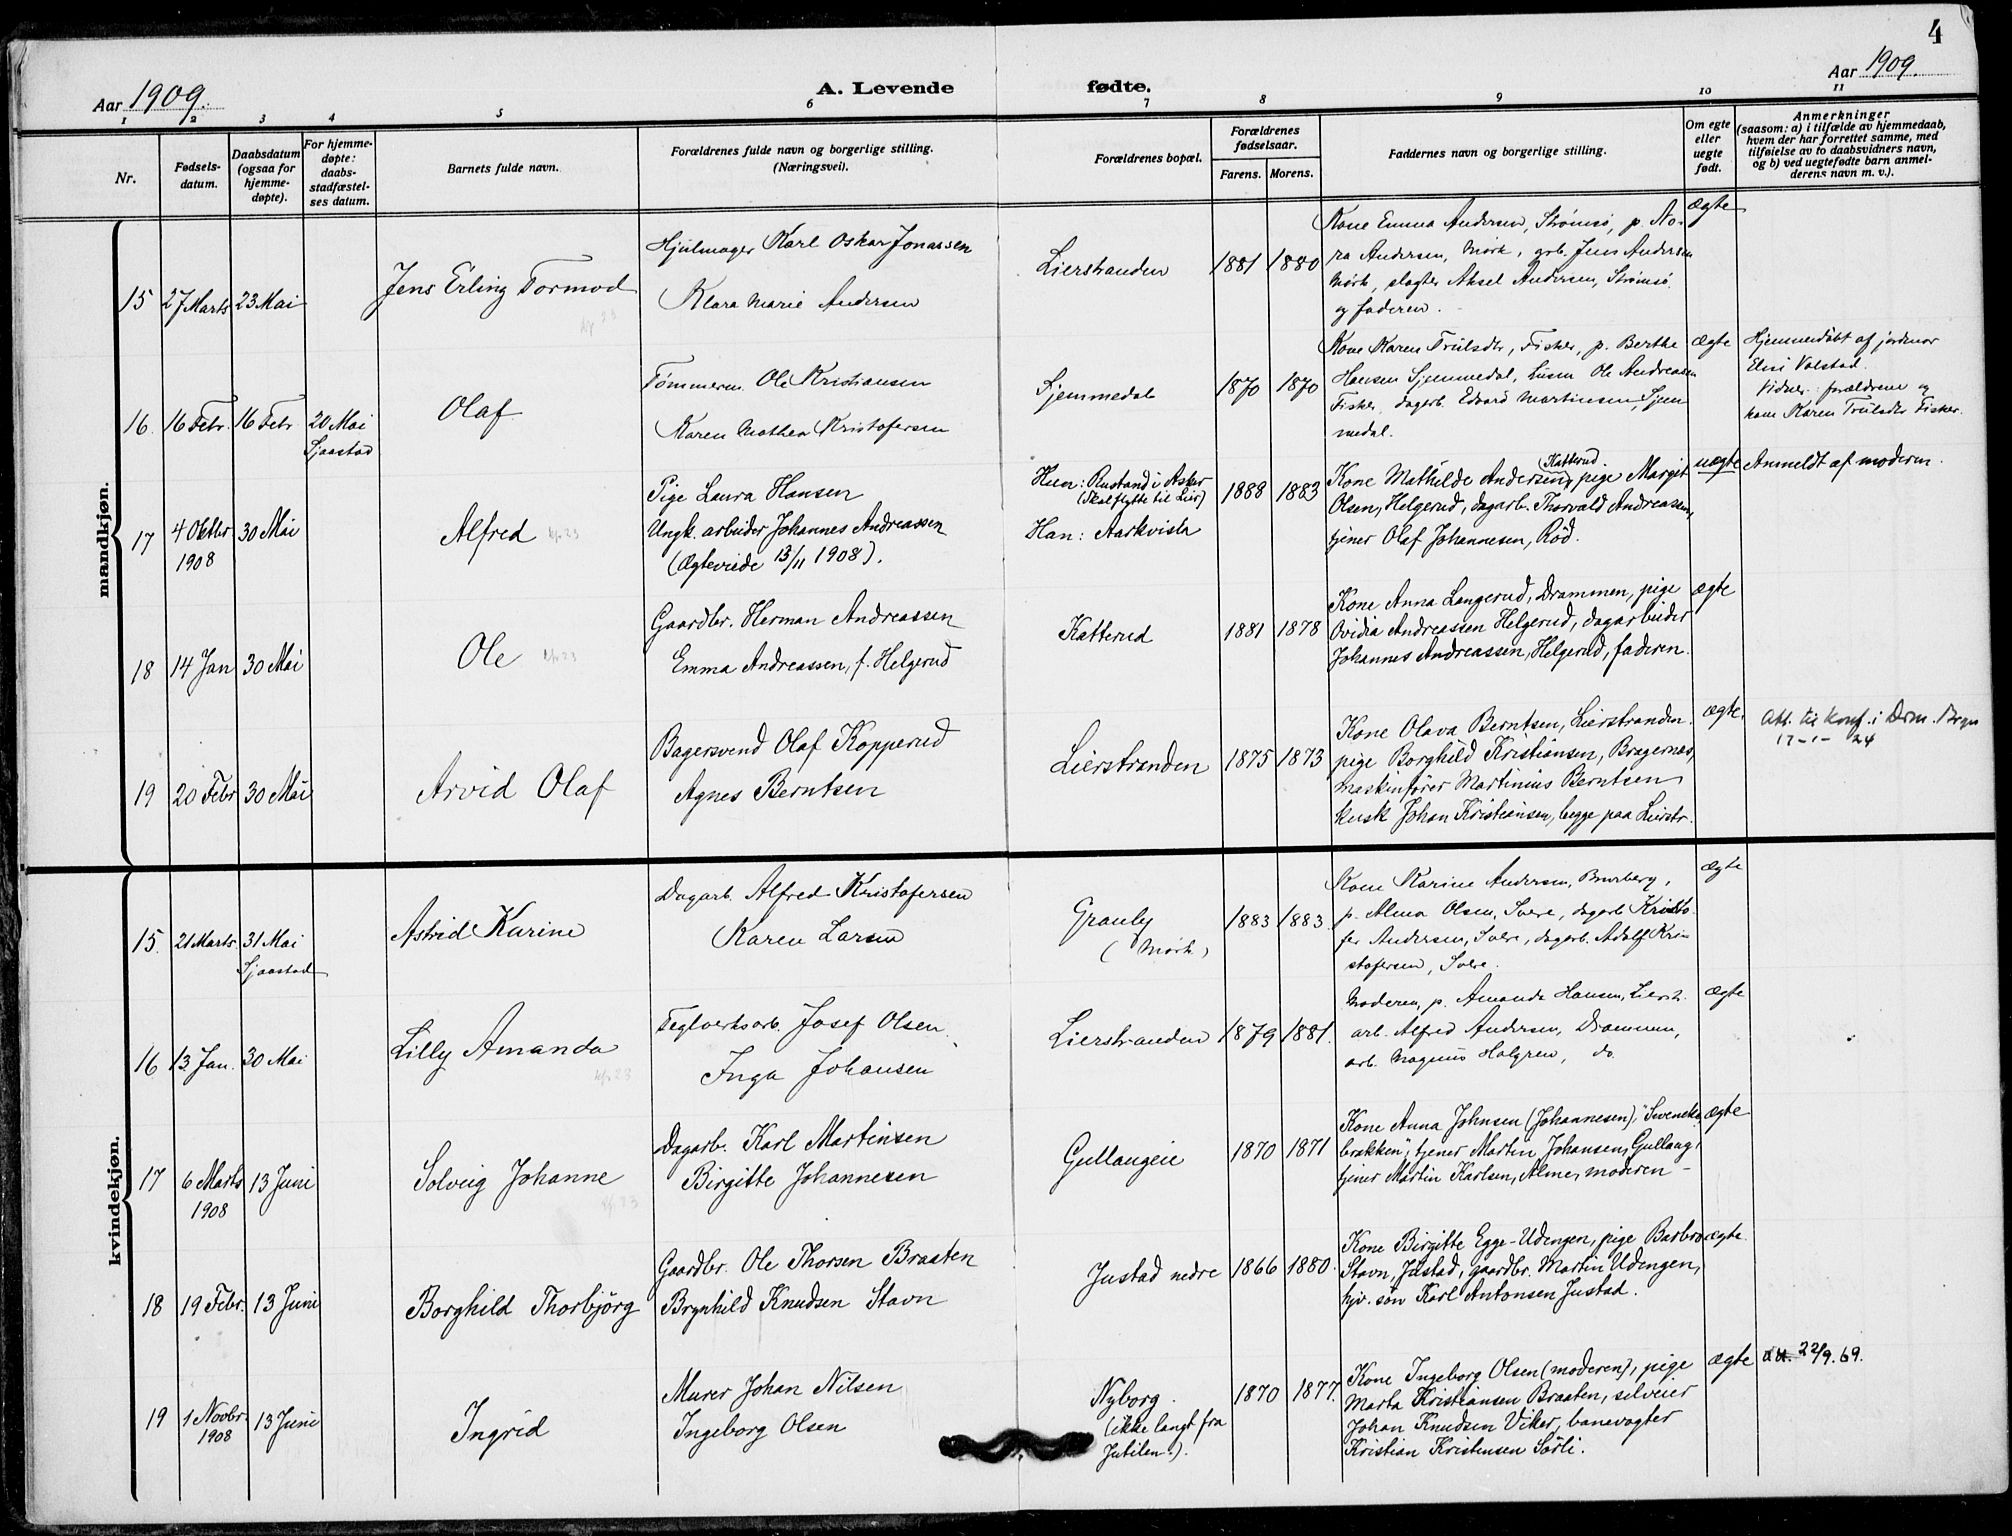 4
Aar 1909.
A. Levende fødte.
Aar 1909.
1 2 3 4 5 6 7 8 9 10 11
Nr.
Fødsels-
datum.
Daabsdatum
(ogsaa for
hjemme-
døpte).
For hjemme-
døpte:
daabs-
stadfæstel-
ses datum.
Barnets fulde navn.
Forældrenes fulde navn og borgerlige stilling.
(Næringsvei).
Forældrenes bopæl.
Forældrenes
fødselsaar.
Farens. Morens.
Faddernes navn og borgerlige stilling.
Om egte
eller
uegte
født.
Anmerkninger
(saasom: a) i tilfælde av hjemmedaab,
hvem der har forrettet samme, med
tilføielse av to daabsvidners navn,
og b) ved uegtefødte barn anmel-
derens navn m. v.).
mandkjøn.
15 27 Marts 23 Mai
Jens Erling Tormod
Hjulmager Karl Oskar Jonassen
Klara Marie Andersen
Lierstranden
1881 1880
Kone Emma Andersen, Strømsø, p. No-
ra Andersen, Mørk, grb. Jens Andersen
Mørk, slagter Aksel Andersen, Strømsø
og faderen.
ægte
16. 16 Febr. 16 Febr. 20 Mai
Sjaastad
Olaf
Tømmerm. Ole Kristiansen
Karen Mathea Kristofersen
Sjemmedal
1870 1870
Kone Karen Trulsdtr, Fisker, p. Berthe
Hansen Sjemmedal, Ole Andreasen
Fisker, dagarb. Edvard Martinsen, Sjem
medal.
ægte
Hjemmedøbt af jordmor
Elni Valstad.
Vidner: forældrene og
kone Karen Trulsdtr Fisker.
17 4 Oktbr 30 Mai
1908
Alfred
Pige Laura Hansen
Ungk. arbeider Johannes Andreassen
(Ægteviede 13/11 1908).
Hun: Rustand i Asker
(Skal flytte til Lier)
Han: Aarkvisla
1888 1883
Katterud
Kone Mathilde Andersen, pige Margit
Olsen, Helgerud, dagarb. Thorvald Andreassen,
tjener Olaf Johannesen, Rød.
uægte
Anmeldt af moderen.
18 14 Jan 30 Mai
Ole
Gaardbr. Herman Andreassen
Emma Andreassen, f. Helgerud
Katterud
1881 1878
Kone Anna Langerud, Drammen, pige
Ovidia Andreassen Helgerud, dagarbeider
Johannes Andreassen, Helgerud, faderen.
ægte
19 20 Febr 30 Mai
Arvid Olaf
Bagersvend Olaf Kopperud
Agnes Berntsen
Lierstranden
1875 1873
Kone Olava Berntsen, Lierstranden.
pige Borghild Kristiansen, Bragernæs,
maskinfører Martinius Berntsen
kusk Johan Kristiansen, begge paa Lierstr.
ægte.
Att. til konf. i Drm.
17-1- 24
kvindekjøn.
15. 21 Marts. 31 Mai
Sjaastad
Astrid Karine
Dagarb. Alfred Kristofersen
Karen Larsen
Granly
(Mørk)
1883 1883.
Kone Karine Andersen,
p. Alma Olsen, Solve, dagarb Kristo-
fer Andersen, Solve, dagarb. Adolf Kri-
stofersen, Solve.
ægte
16 13 Jan. 30 Mai
Lilly Amanda
Teglverksarb. Josef Olsen
Inga Johansen
Lierstranden
1879 1881.
Moderen, p. Amanda Hansen, Lierstr.
arb. Alfred Andersen, Drammen,
arb. Magnus Holgren, do.
ægte
17 6 Marts 13 Juni
1908
Solveig Johanne
Dagarb. Karl Martinsen
Birgitte Johannesen
Gullaugeie
1870 1871
Kone Anna Johnsen (Johannesen), "Svenske
brækken", tjener Martin Johansen, Gullaug,
tjener Martin Karlsen, Alme, moderen –
ægte
18 19 Febr. 13 Juni
Borghild Thorbjörg
Gaardbr. Ole Thorsen Braaten
Brynhild Knudsen Stavn
Justad nedre
1866 1880.
Kone Birgitte Egge-Udengen, pige Barbro
Stavn, Justad, gaardbr. Martin Udengen,
hjv. søn Karl Antonsen Justad.
ægte.
19 1 Novbr. 13 Juni
1908
Ingrid
Murer Johan Nilsen
Ingeborg Olsen
Nyborg.
(ikke langt fra
Jubilen.).
1870 1877.
Kone Ingeborg Olsen (moderen), pige
Marta Kristiansen Braaten, selveier
Johan Knudsen Viker, banevagter
Kristian Kristensen Sørli.
ægte
att. 22/9. 69.